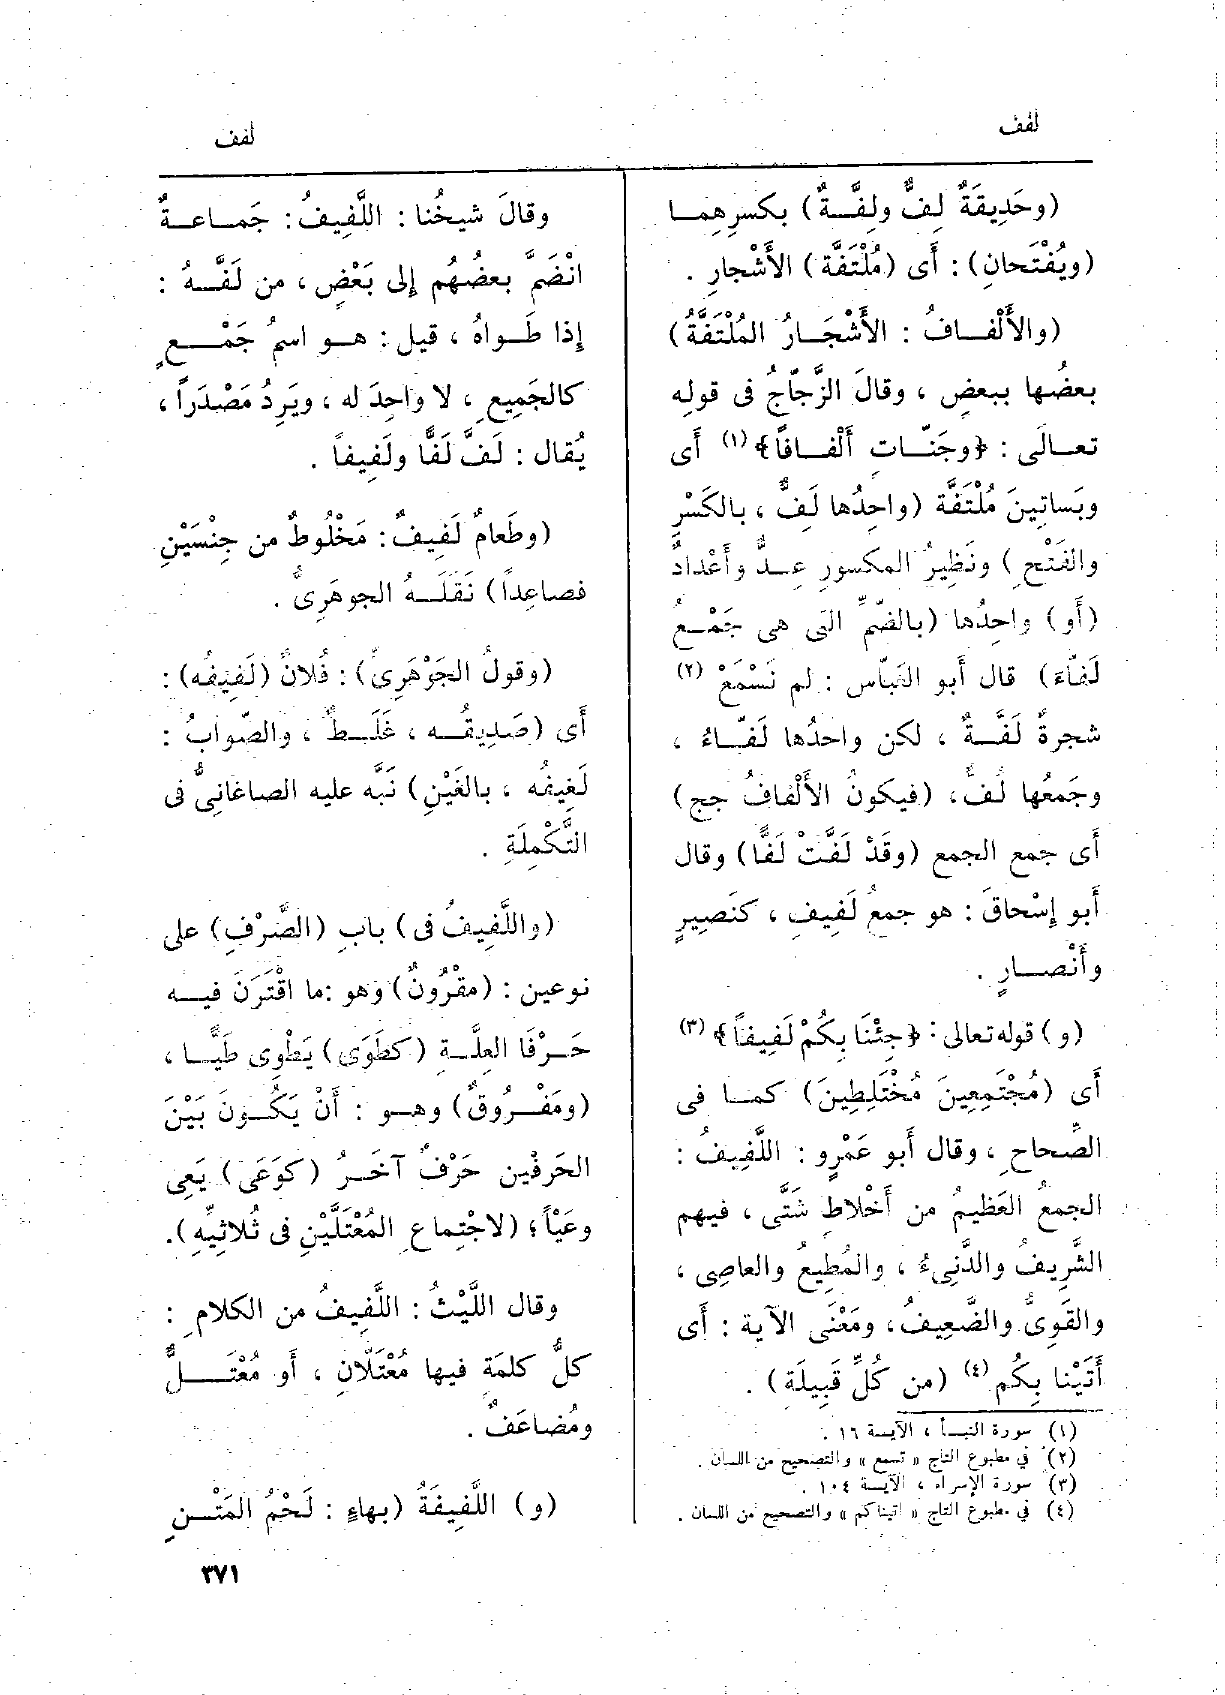 لفف
لفف
(وحَدِيقَةٌ لِفٌّ ولِفَّةٌ) بكسرِهِما
(ويُفْتَحانِ) : أَى (مُلْتفَّة) الأَشْجارِ .
(والأَلْفافُ : الأَشْجَارُ المُلْتَفَّةُ)
بعضُها ببعضٍ ، وقالَ الزَّجّاجُ فى قولِه
تعالَى : ﴿وجَنّاتٍ أَلْفافًا﴾ (١) أَى
وبَساتِينَ مُلْتَفَّة (واحِدُها لَِفٌّ ، بالكَسْرِ
والفَتْحِ) ونَظِيرُ المكسورِ عِدٌّ وأَعْدادٌ
(أَو) واحِدُها (بالضّمِّ التى هى جَمْعُ
لَفّاءَ) قال أَبو العَبّاس : لم نَسْمَعْ (٢)
شجرةٌ لَفَّةٌ ، لكن واحدُها لَفّاءُ ،
وجَمعُها لُفٌّ ، (فيكونُ الأَلْفافُ جج)
أَى جمع الجمع (وقَدْ لَفَّتْ لَفًّا) وقال
أَبو إِسْحاقَ : هو جمعُ لَفِيفٍ ، كنَصِيرٍ
وأَنْصارٍ .
(و) قوله تعالى : ﴿جِئْنَا بِكُمْ لَفِيفاً﴾ (٣)
أَى (مُجْتَمِعِينَ مُخْتَلِطِينَ) كما فى
الصِّحاحِ ، وقال أَبو عَمْرٍو : اللَّفِيفُ :
الجمعُ العَظِيمُ من أَخْلاطٍ شَتَّى ، فيهم
الشَّرِيفُ والدَّنِىءُ ، والمُطِيعُ والعاصِى ،
والقَوِىُّ والضَّعِيفُ ، ومَعْنَى الآية : أَى
أَتَيْنا بِكُم (٤) (من كُلِّ قَبِيلَةٍ) .
(١) سورة النبأ ، الآية ١٦ .
(٢) في مطبوع التاج « تسمع » والتصحيح من اللسان .
(٣) سورة الإسراء ، الآية ١٠٤ .
(٤) في مطبوع التاج « اتيناكم » والتصحيح من اللسان .
وقالَ شيخُنا : اللَّفِيفُ : جَماعةٌ
انْضَمَّ بعضُهُم إلى بَعْضٍ ، من لَفَّهُ :
إِذا طَواهُ ، قيل : هو اسمُ جَمْعٍ
كالجَمِيعِ ، لا واحِدَ له ، ويَرِدُ مَصْدَراً ،
يُقال : لَفَّ لَفًّا ولَفِيفاً .
(وطَعامٌ لَفِيفٌ : مَخْلُوطٌ من جِنْسَيْنِ
فصاعِداً) نَقَلَهُ الجوهَرِىُّ .
(وقولُ الجَوْهَرِىِّ) : فُلانٌ (لَفِيفُه) :
أَى (صَدِيقُه ، غَلَطٌ ، والصّوابُ :
لَغِيفُه ، بالغَيْنِ) نَبَّه عليه الصاغانِىُّ فى
التَّكْمِلَةِ .
(واللَّفِيفُ فى) بابِ (الصَّرْفِ) على
نوعين : (مقْرُونٌ) وهو : ما اقْتَرَنَ فيه
حَرْفَا العِلَّةِ (كطَوَى) يَطْوِى طَيًّا ،
(ومَفْرُوقٌ) وهو : أَنْ يَكُونَ بَيْنَ
الحَرفْين حَرْفٌ آخَرُ (كوَعَى) يَعِى
وعَيْاً ؛ (لاجْتِماعِ المُعْتَلَّيْنِ فى ثُلاثِيِّهِ) .
وقال اللَّيْثُ : اللَّفِيفُ من الكلامِ :
كلُّ كلمَة فيها مُعْتَلّانِ ، أَو مُعْتَلٌّ
ومُضاعَفٌ .
(و) اللَّفِيفَةُ (بهاءٍ : لَحْمُ المَتْنِ
٣٧١